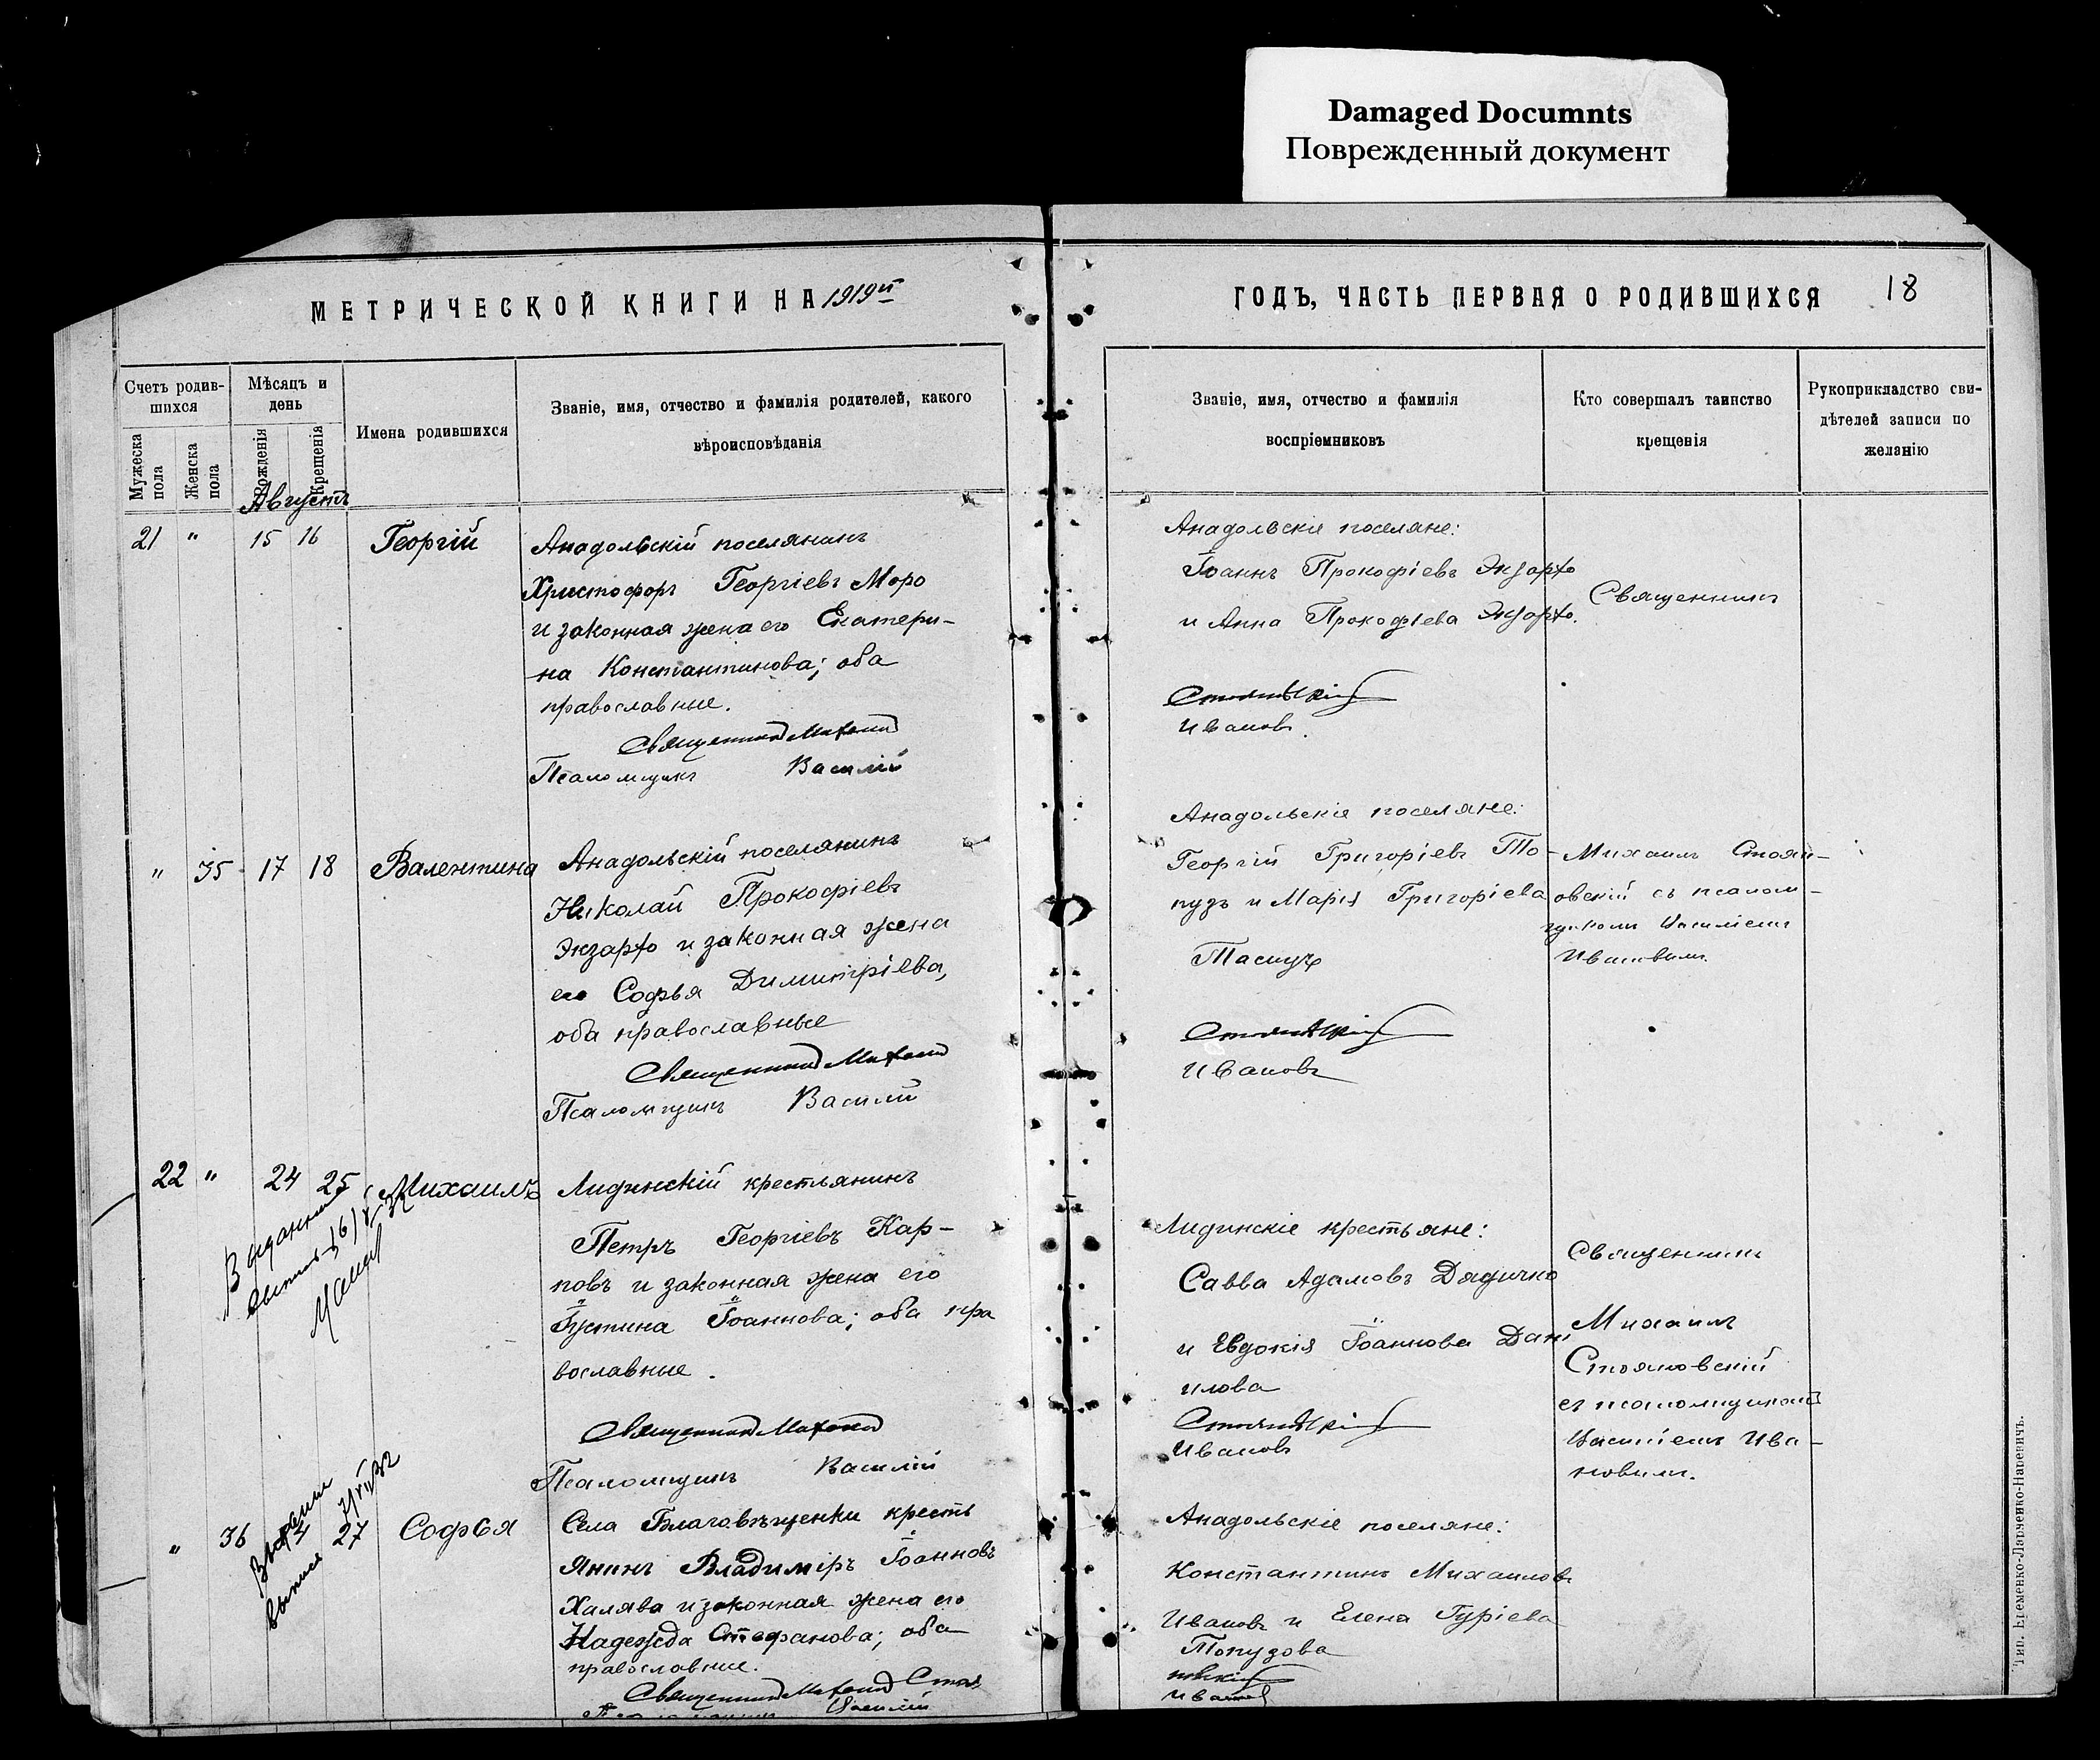 Damaged Documnts
Поврежденный документ
МЕТРИЧЕСКОЙ КНИГИ НА 1919й
ГОДЪ, ЧАСТЬ ПЕРВАЯ О РОДИВШИХСЯ
18
Счетъ родив-
шихся
Мужеска пола
Женска пола
Мѣсяцъ и
день
Рожденія
Крещенія
Имена родившихся
Званіе, имя, отчество и фамилія родителей, какого
вѣроисповѣданія
Званіе, имя, отчество и фамилія
воспріемниковъ
Кто совершалъ таинство
крещенія
Рукоприкладство сви-
дѣтелей записи по
желанію
Августъ
21 " 15 16 Георгій
Анадольскій поселянинъ
Христофоръ Георгіевъ Моро
и законная жена его Екатери-
на Константинова; оба
православные.
Священникъ Михаилъ
Псаломщикъ Василій
Анадольскіе поселяне:
Іоаннъ Прокофіевъ Экзархо
и Анна Прокофіева Экзархо.
Стояновскій
Ивановъ.
Священникъ
" 35 17 18 Валентина
Анадольскій поселянинъ
Николай Прокофіевъ
Экзархо и законная жена
его Софья Димитріева,
оба православные
Священникъ Михаилъ
Псаломщикъ Василій
Анадольскіе поселяне:
Георгій Григоріевъ То-
пузъ и Марія Григоріева
Стояновскій
Ивановъ
Михаилъ Стоян-
овскій съ псалом-
щикомъ Василіемъ
Ивановымъ.
22 " 24 25 Михаилъ
Лидинскій крестьянинъ
Петръ Георгіевъ Кар-
повъ и законная жена его
Іустина Іоаннова; оба пра
вославные.
Священникъ Михаилъ
Псаломщикъ Василій
Лидинскіе крестьяне:
Савва Адамовъ Дядичко
и Евдокія Іоаннова Дані
илова
Стояновскій
Ивановъ
Священникъ
Михаилъ
Стояновскій
съ псаломщикомъ
Василіемъ Ива-
новымъ.
" 36 27 Софья
Села Благовѣщенки кресть
янинъ Владиміръ Іоанновъ
Халява и законная жена его
Надежда Стефанова; оба
православные.
Священникъ Михаилъ Стоя
Псаломщикъ Василій
Анадольскіе поселяне:
Константинъ Михаиловъ
Ивановъ и Елена Гуріева
Топузова
новскій
Ивановъ
Тип. Еременко-Лапченко-Наревичъ.